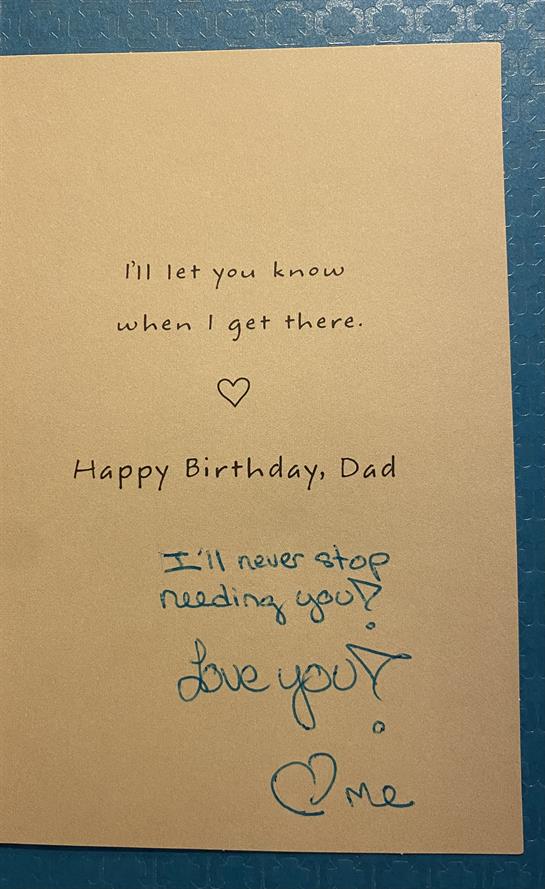 I'll let you know
when I get there.
Happy Birthday, Dad
I'll never stop
needing you!
Love you!
me